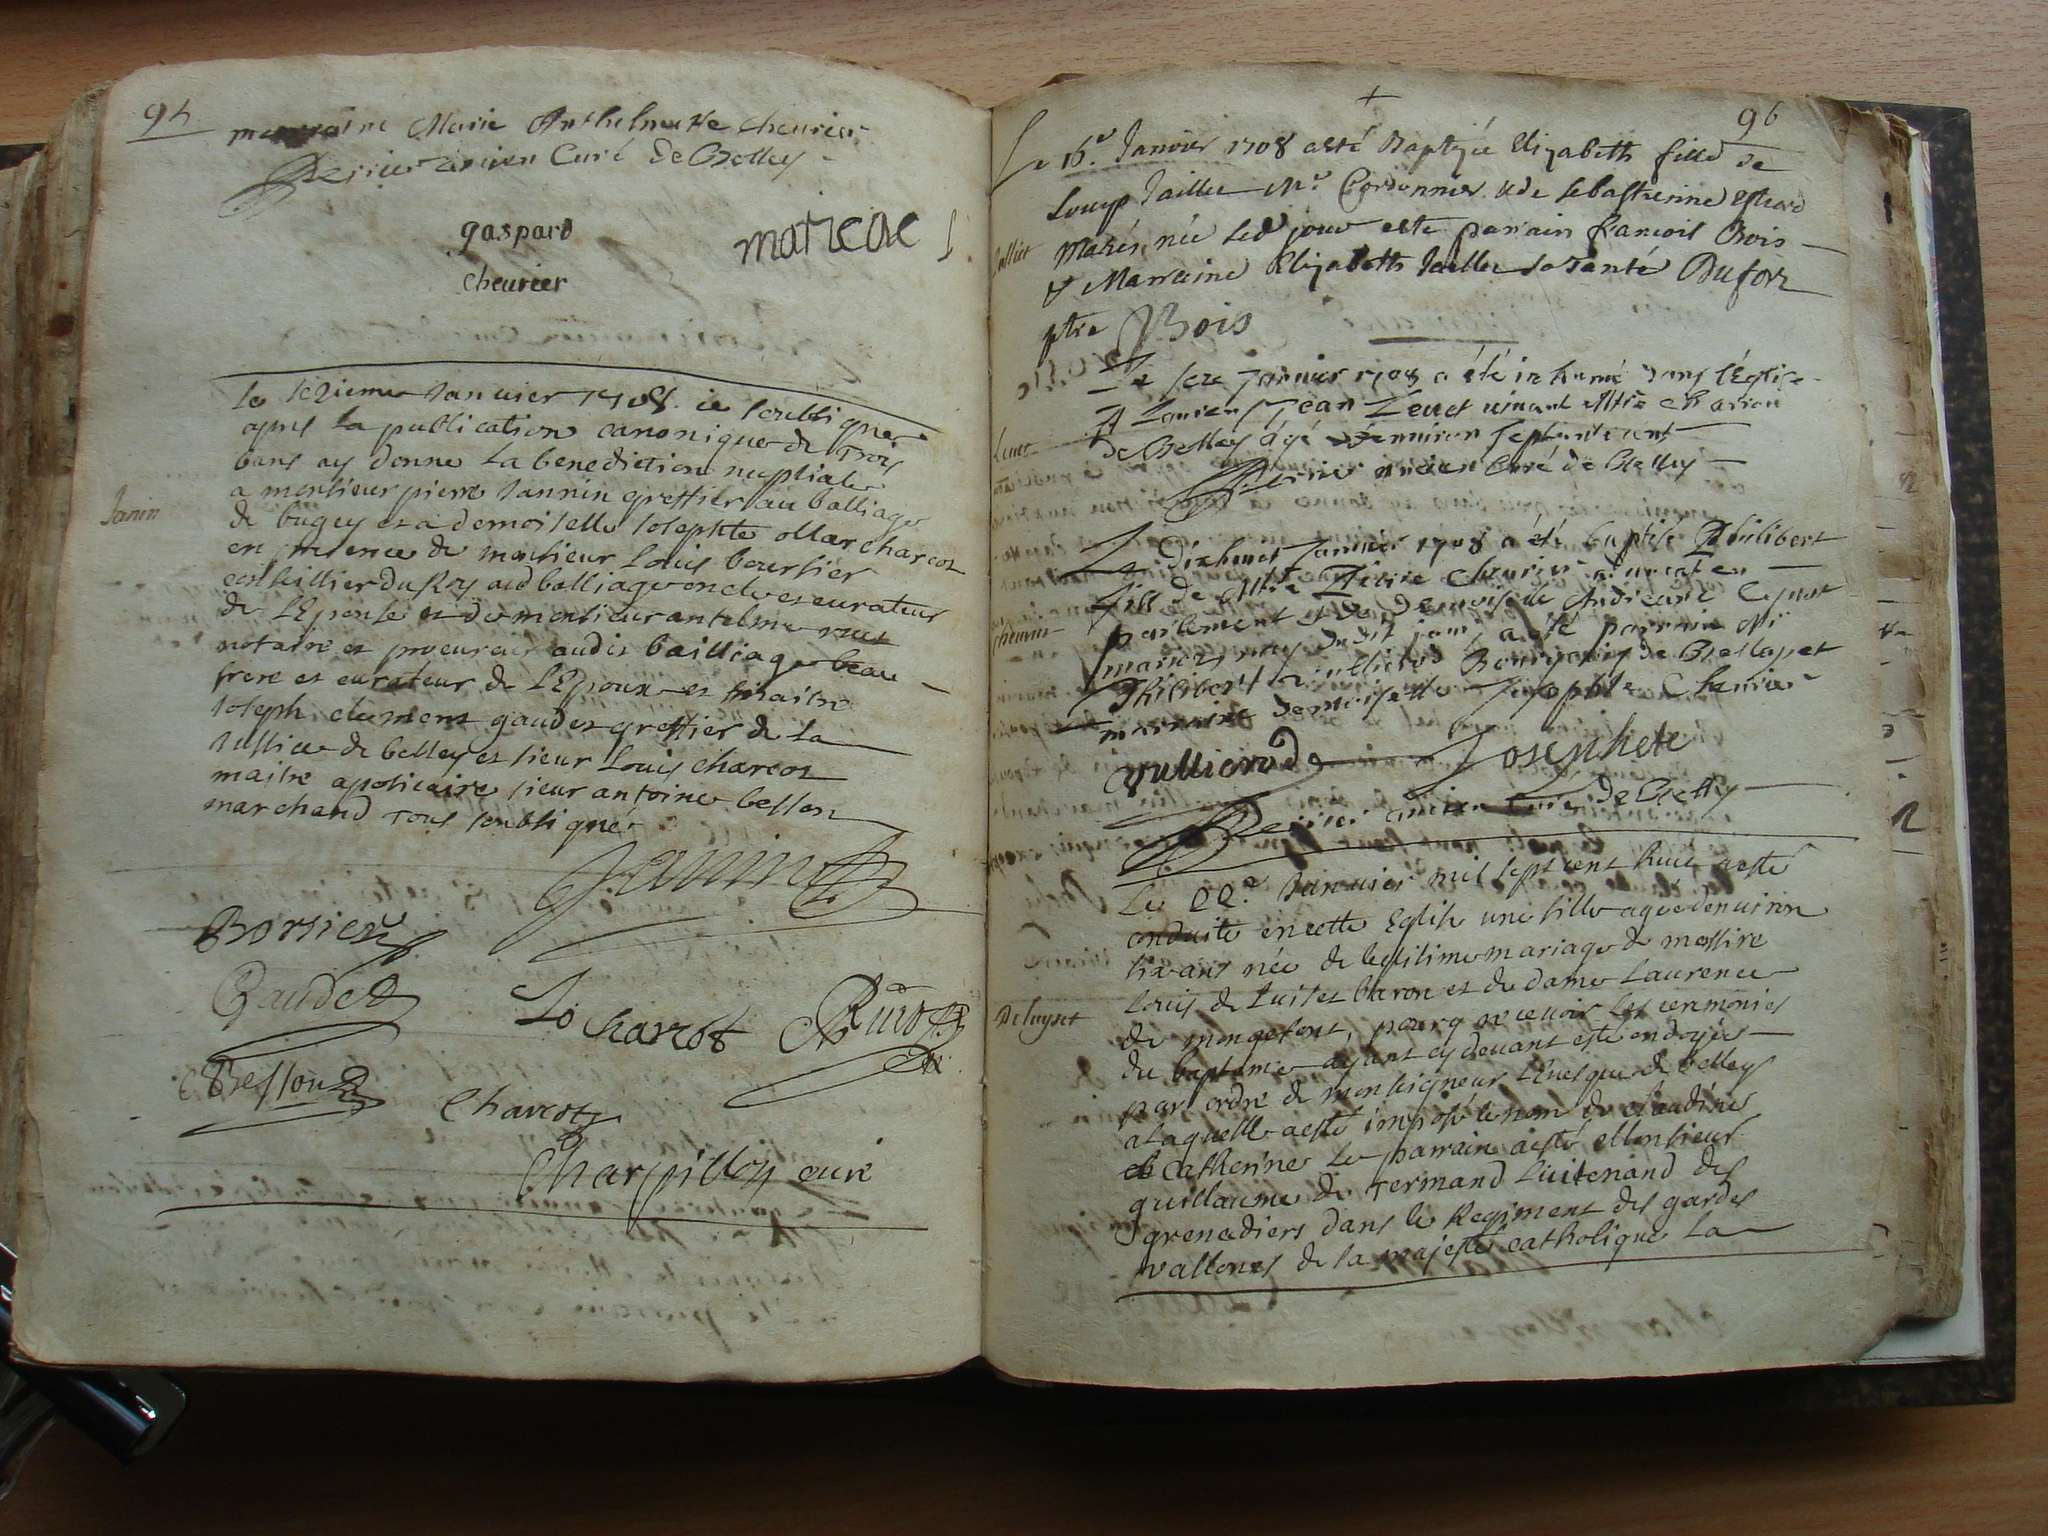 95
marraine Marie Anthelmette Cheurier
Perrier ancien Curé de Belley
gaspard
cheurier
marieae
Le sezieme Januier 1708. ie soubsigne
apres la publication canonique de Trois
bans ay donne la benediction nuptiale
a monsieur pierre Jannin greffier au balliage
Janin
de bugey et a demoiselle Josephte Marcharcot
en presence de monsieur Louis boursier
conseillier du Roy aud balliage oncle et curateur
de l'Epouse et de monsieur antelme
notaire et procureur audit bailliage beau
frere et curateur de l'Epoux et maitre
Joseph clement gaudet greffier de la
Justice de belley et sieur Louis charcot
maitre apoticaire sieur antoine besson
marchand Tous soubsigné
Janin
Borsier
Gaudet
Lo Charcot
Besson
Charcot
Charpillon curé
96
Le 16e. Janvier 1708 a esté Baptizée Elizabeth fille de
Loup Jaillet Me. Cordonnier & de sebastienne
Jalliet
Mariés, née led jour a esté parrain francois Bois
& Marraine Elizabeth Jaillet sa Tante Dufour
ptre Bois
Le seze Januier 1708 a été inhumé dans l'Église
St Laurens Jean Leuet uiuant Mtre charron
Leuet
de Belley âgé d'enuiron septante ans
Perrier ancien Curé de Belley
Le Dixhuict Januier 1708 a été baptisé Philibert
fils de Mtre Pierre Cheurier aduocat en
parlement et de Demoiselle Andreane
Cheurier
mariez, nay dudit jour, a été parrain Mr
Philibert Vullierod Bourgeois de Belley et
marraine demoiselle Josephte Cheurier
vullierod Josephete
Perrier ancien Curé de Belley
Le 22e. Januier mil sept cent huit a esté
conduite en cette Eglise une fille agée denuiron
six ans née de legitime mariage de messire
Louis de Luiset baron et de dame Laurence
Deluyset
de mongefont, pour y receuoir les ceremonies
du baptême ayant cy deuant esté endoyée
par ordre de monseigneur l'Euesque de belley
a laquelle a esté imposé le nom de claudine
et Catherine le parrain a esté Monsieur
guillaume de Termand Luitenand des
grenadiers dans le Regiment des gardes
vallones de sa majesté catholique La